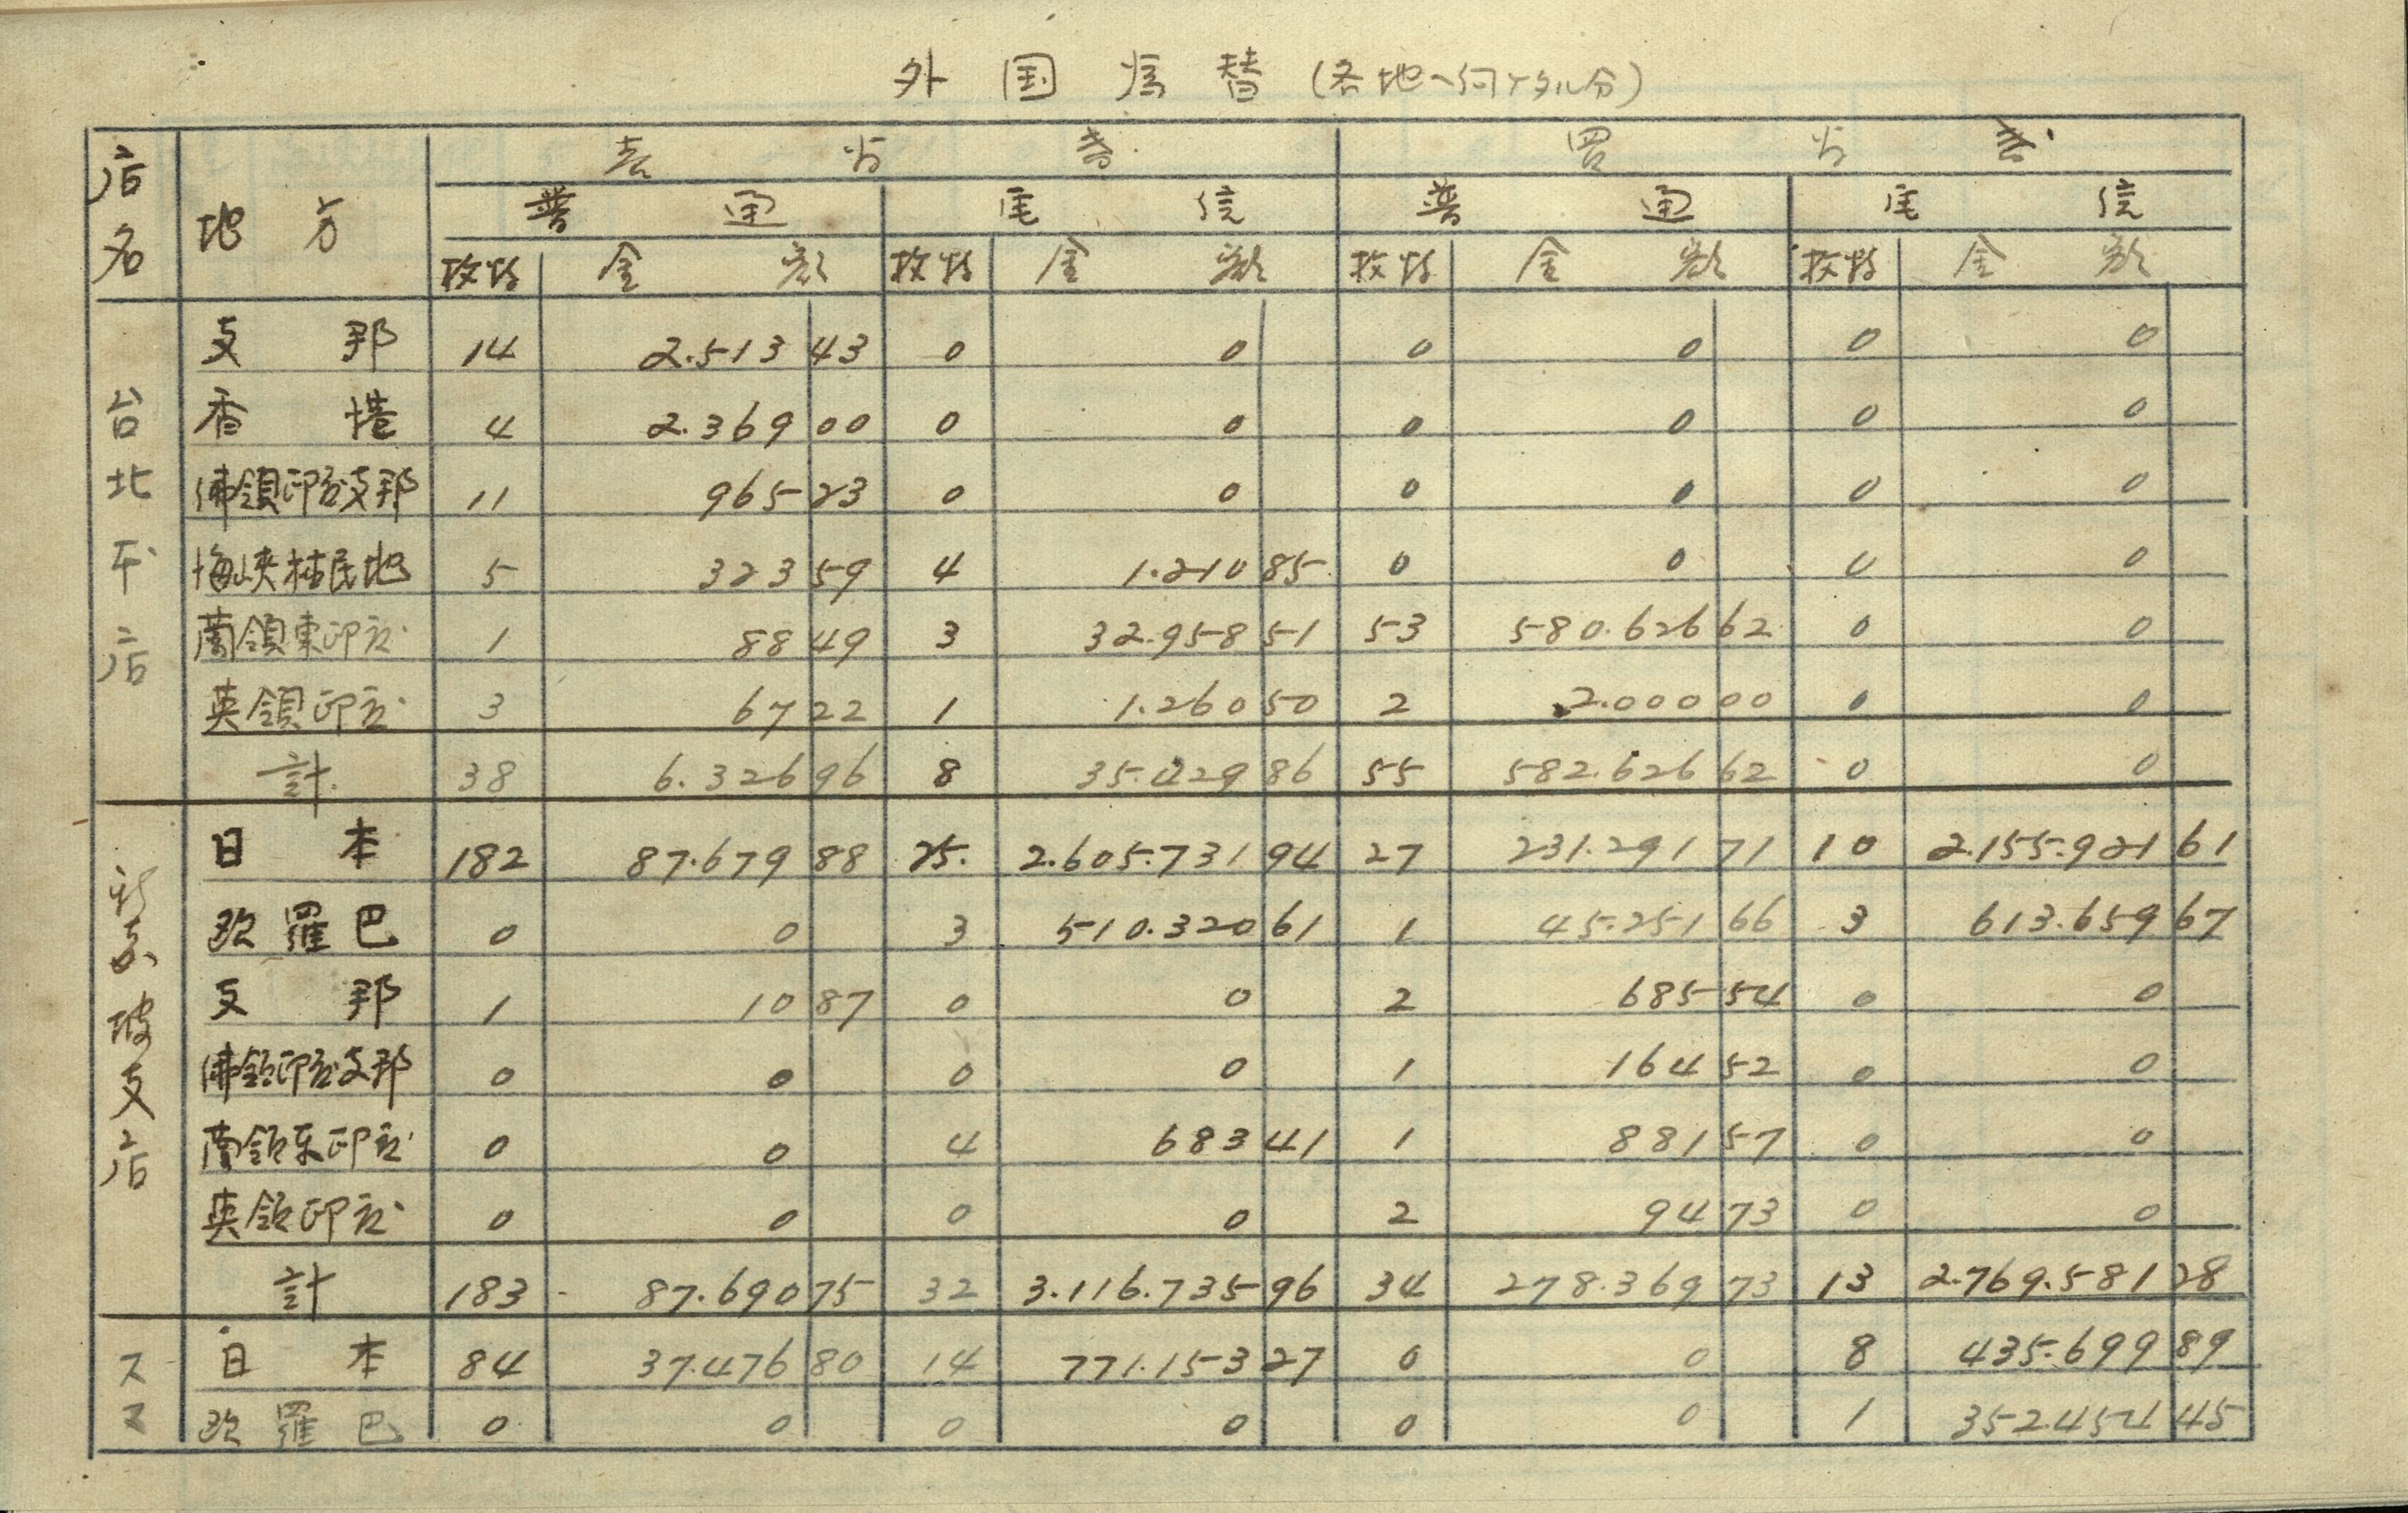 外国為替(各地ヘ向ケタル分)
店名 地方 売為替 買為替
普通 電信 普通 電信
枚数 金額 枚数 金額 枚数 金額 枚数 金額
台北本店
支那 14 2.513 43 0 0 0 0 0 0
香港 4 2.369 00 0 0 0 0 0 0
佛領印度支那 11 965 23 0 0 0 0 0 0
海峡植民地 5 323 59 4 1.210 85 0 0 0 0
蘭領東印度 1 88 49 3 32.958 51 53 580.626 62 0 0
英領印度 3 67 22 1 1.260 50 2 2.000 00 0 0
計 38 6.326 96 8 35.429 86 55 582.626 62 0 0
新嘉坡支店
日本 182 87.679 88 25. 2.605.731 94 27 231.291 71 10 2.155.921 61
欧羅巴 0 0 3 510.320 61 1 45.251 66 3 613.659 67
支那 1 10 87 0 0 2 685 54 0 0
佛領印度支那 0 0 0 0 1 164 52 0 0
蘭領東印度 0 0 4 683 41 1 881 57 0 0
英領印度 0 0 0 0 2 94 73 0 0
計 183 87.690 75 32 3.116.735 96 34 278.369 73 13 2.769.581 28
スス
日本 84 37.476 80 14 771.153 27 0 0 8 435.699 89
欧羅巴 0 0 0 0 0 0 1 352.454 45